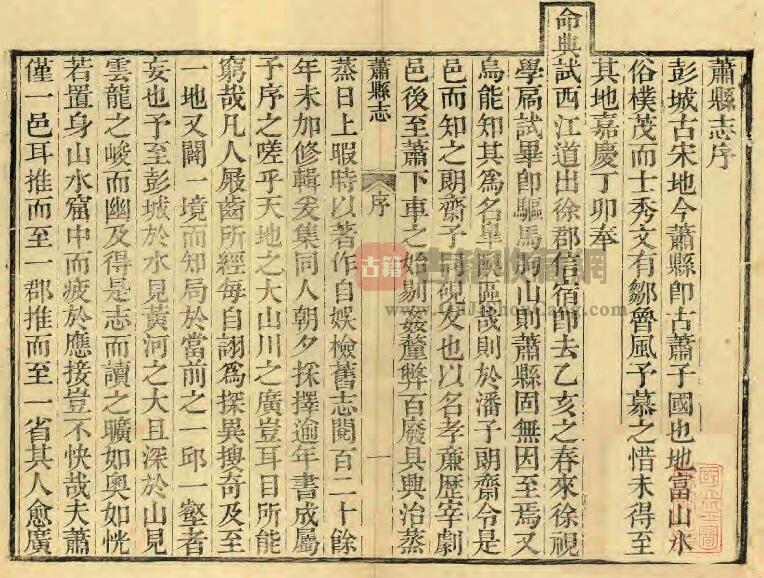 蕭縣志序
彭城古宋地今蕭縣卽古蕭子國也地富山水
俗樸茂而士秀文有鄒魯風予慕之惜未得至
其地嘉慶丁卯奉
命典試西江道出徐郡信宿卽去乙亥之春來徐視
學扃試畢卽驅馬碭山則蕭縣固無因至焉又
烏能知其爲名皐奧區哉則於潘子朗齋令是
邑而知之朗齋予同硯友也以名孝廉歷宰劇
邑後至蕭下車之始剔姦釐弊百廢具興治蒸
蕭縣志 序 一
蒸日上暇時以著作自娛檢舊志閱百二十餘
年未加修輯爰集同人朝夕採擇逾年書成屬
予序之嗟乎天地之大山川之廣豈耳目所能
窮哉凡人屐齒所經每自詡爲探異搜奇及至
一地又闢一境而知局於當前之一邱一壑者
妄也予至彭城於水見黃河之大且深於山見
雲龍之峻而幽及得是志而讀之曠如奧如恍
若置身山水窟中而疲於應接豈不快哉夫蕭
僅一邑耳推而至一郡推而至一省其人愈廣
古籍